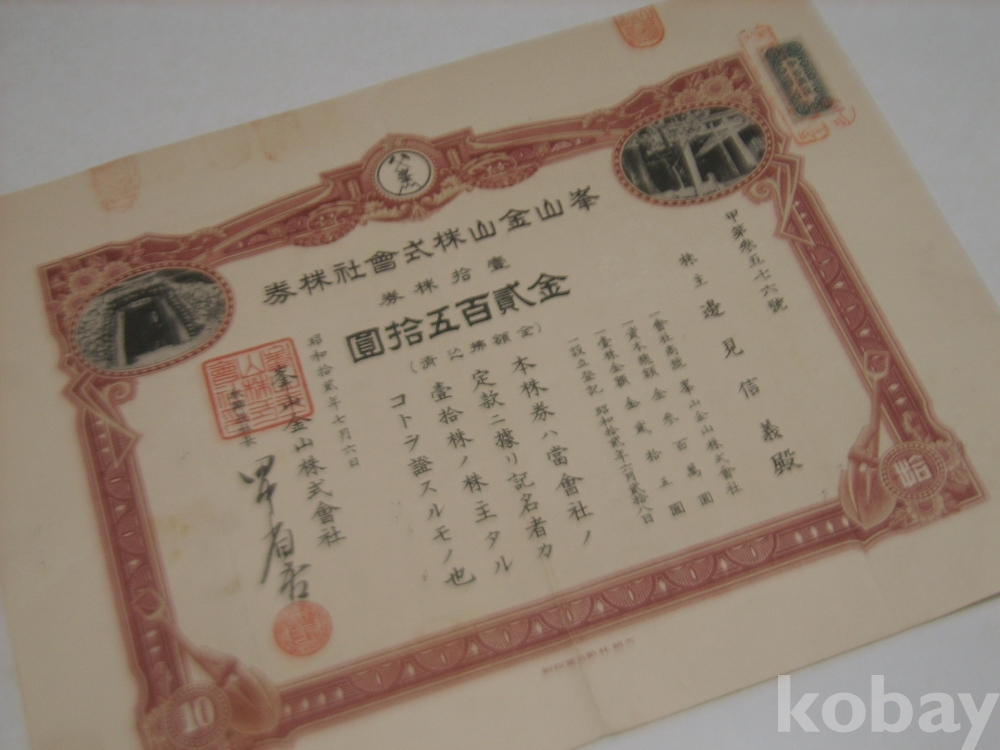 峯山金山株式會社株券
壹拾株券
金貳百五拾圓
(金額拂込濟)
甲第叁五七六號
株主 邉見信義殿
一會社商號 峯山金山株式會社
一資本總額 金參百萬圓
一壹株金額 金貳拾五圓
一設立登記 昭和拾貳年六月貳拾八日
本株券ハ當會社ノ
定款ニ據リ記名者カ
壹拾株ノ株主タル
コトヲ證スルモノ也
昭和拾貳年七月六日
峯山金山株式會社
拾
10
kobay